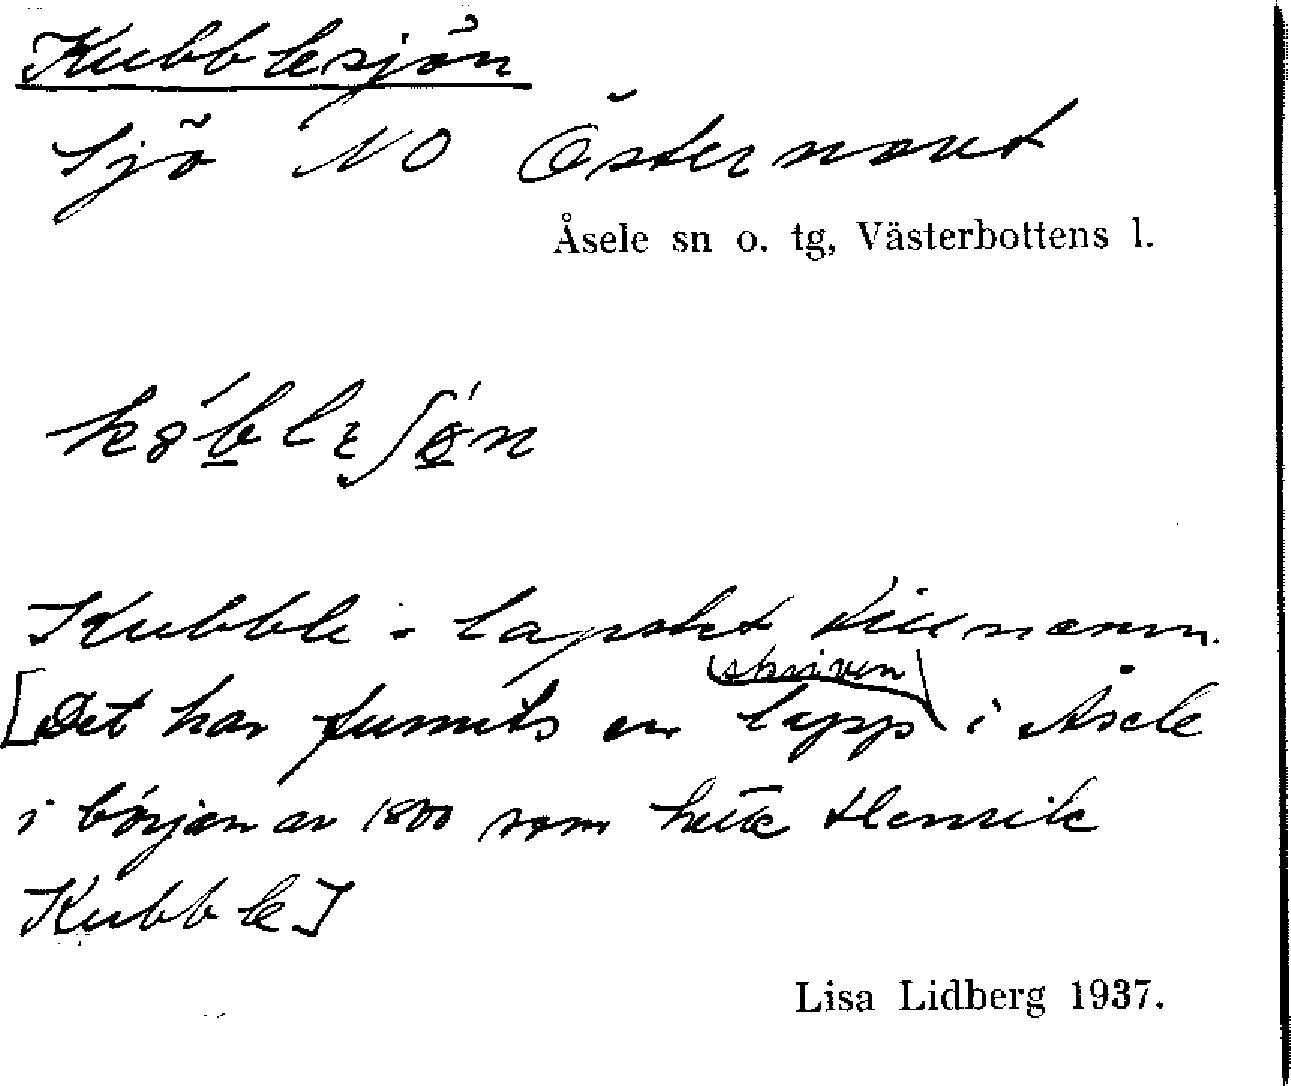 Kubblesjön
Sjö NO Östernoret
Åsele sn o. tg, Västerbottens l.
Kubble - lapskt tillnamn.
skriven
[Det har funnits en lapp i Åsele
i början av 1800 som hette Henrik
Kubble]
Lisa Lidberg 1937.